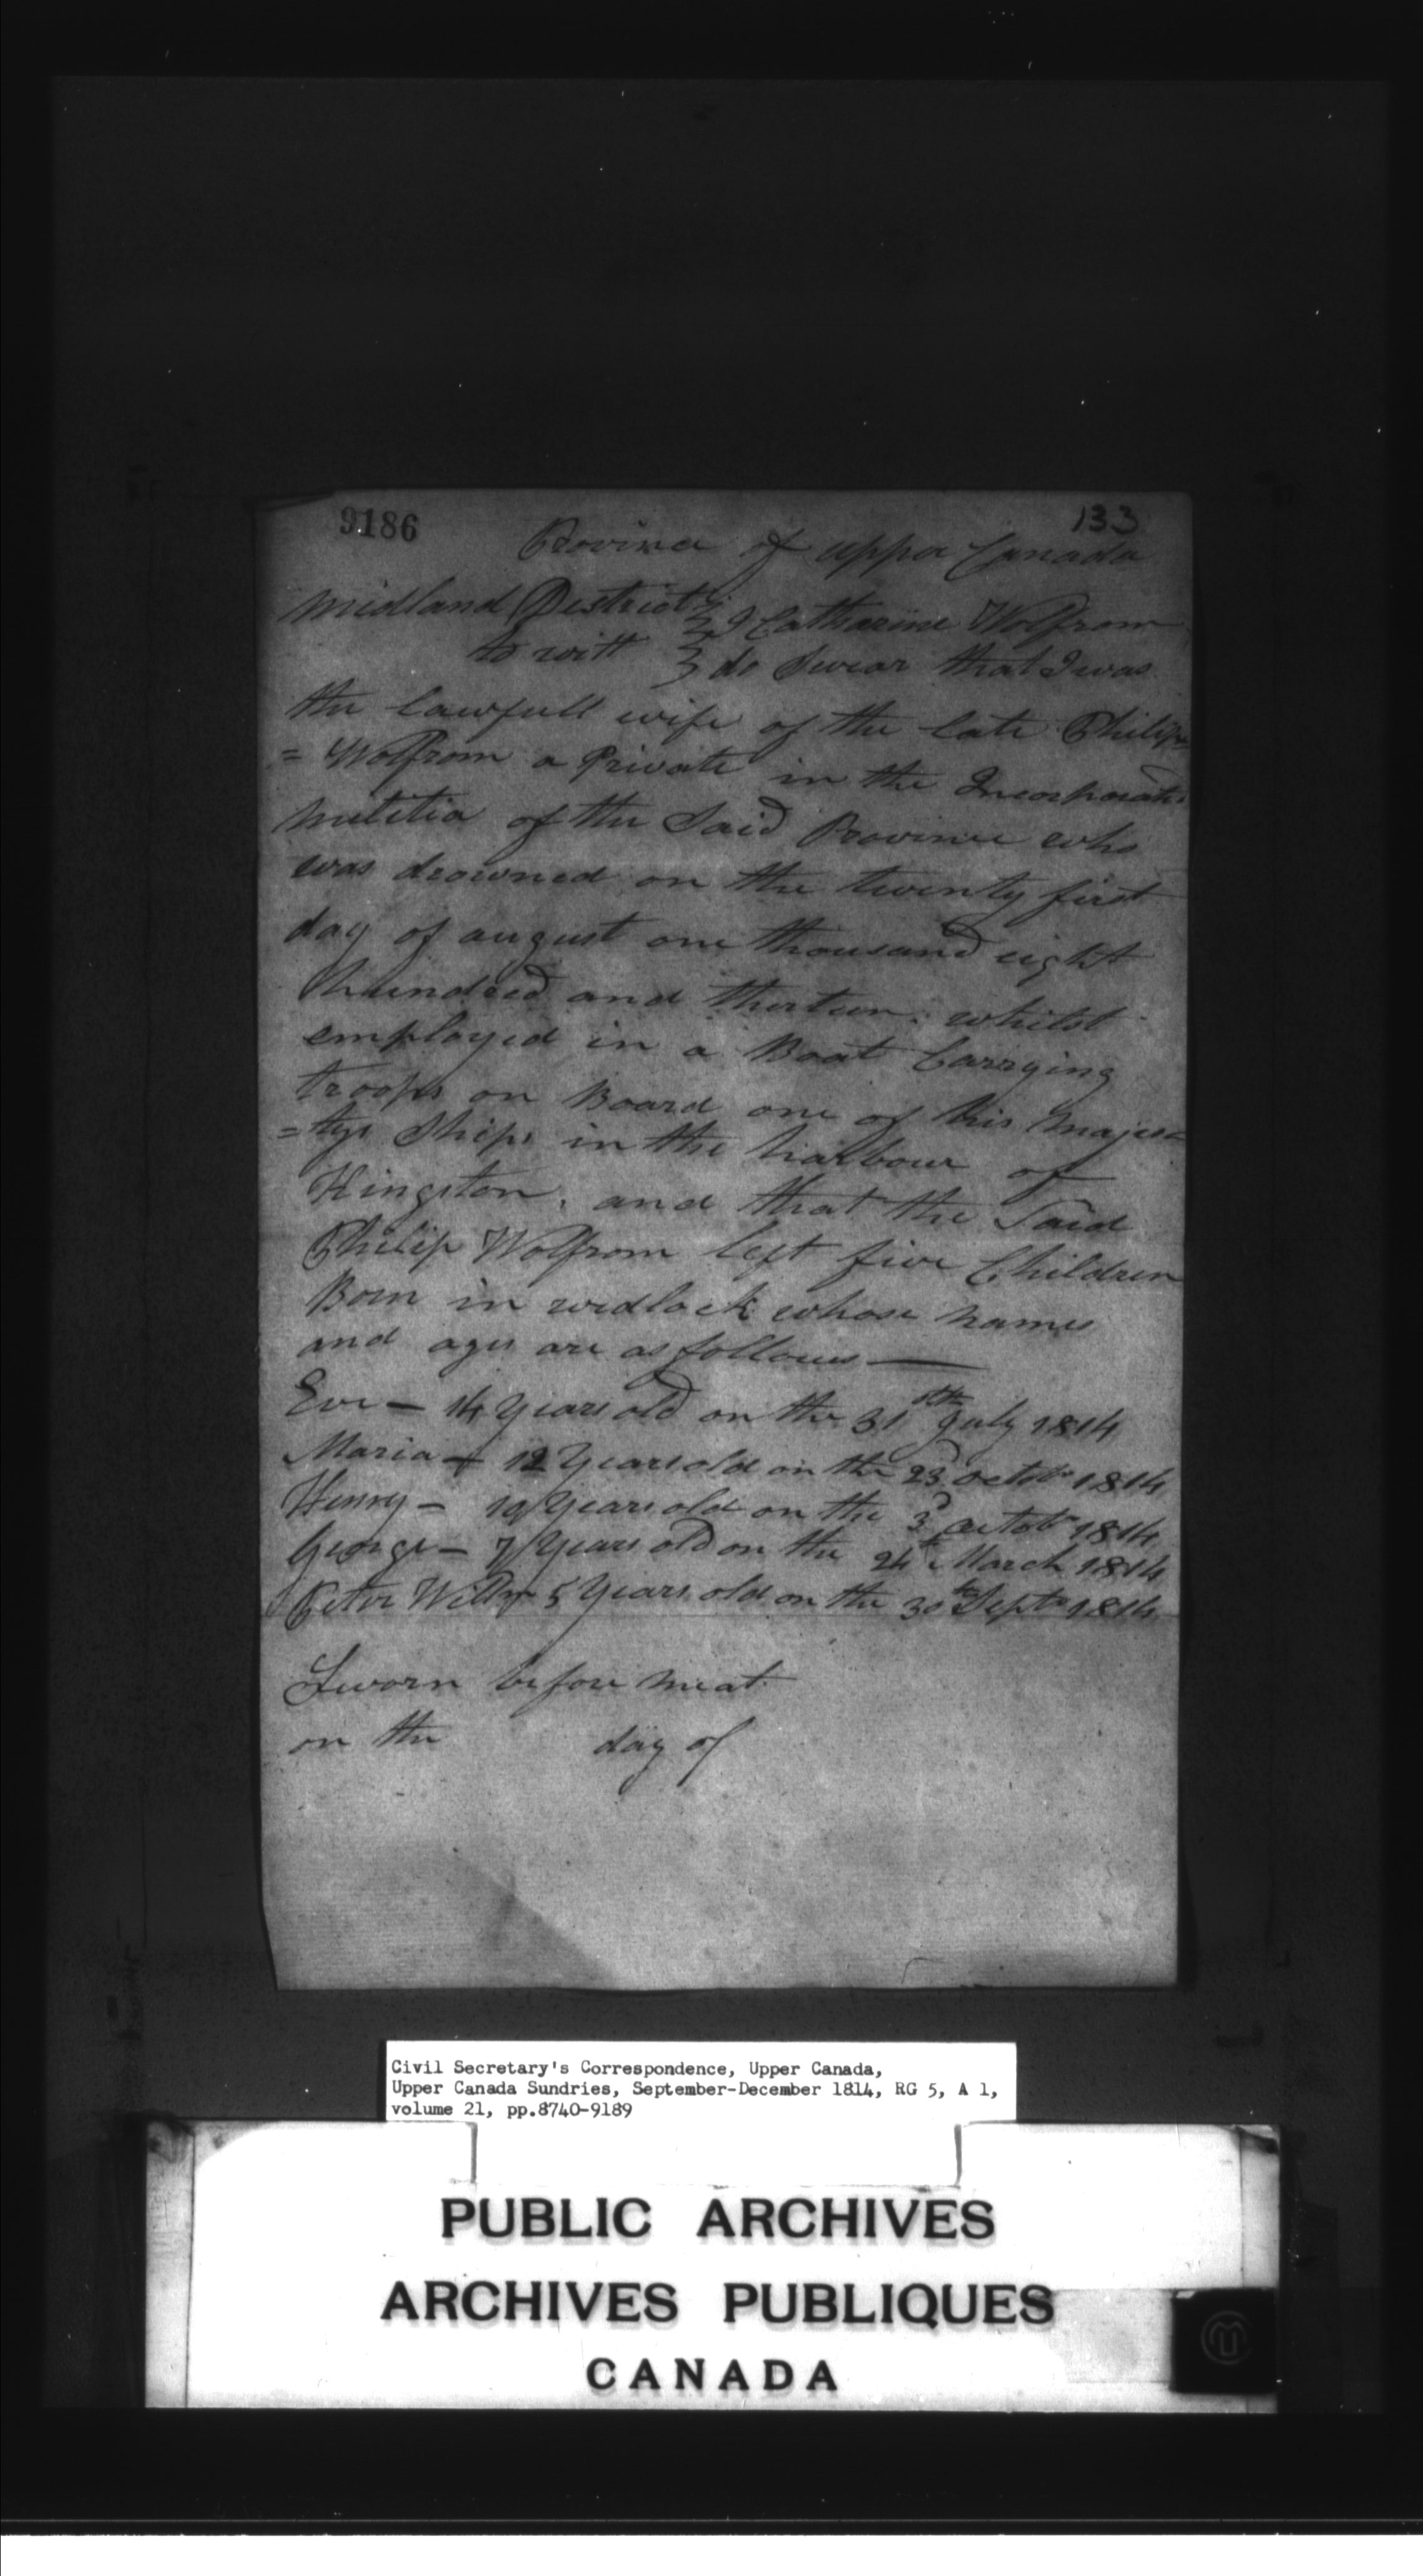 9186
133
Province of upper Canada
Midland District } I Catharine Wolfrom
to witt } do Swear that I was
the lawfull wife of the late Philip
= Wolfrom a Private in the Incorporated
Militia of the Said Province who
was drowned on the twenty first
day of august one thousand eight
hundred and thirteen. whilst
employed in a Boat Carrying
troops on Board one of his Majes=
=tys Ships in the harbour of
Kingston, and that the Said
Philip Wolfrom left five Children
Born in wedlock whose names
and ages are as follows —
Eve — 14 years old on the 31th July 1814
Maria — 12 Years old on the 23d octobr 1814
Henry — 10 Years old on the 3d octobr 1814
George — 7 Years old on the 24th March 1814
Peter Willm 5 Years old on the 30th Septr 1814
Sworn before me at
on the day of
Civil Secretary's Correspondence, Upper Canada,
Upper Canada Sundries, September-December 1814, RG 5, A 1,
volume 21, pp.8740-9189
PUBLIC ARCHIVES
ARCHIVES PUBLIQUES
CANADA